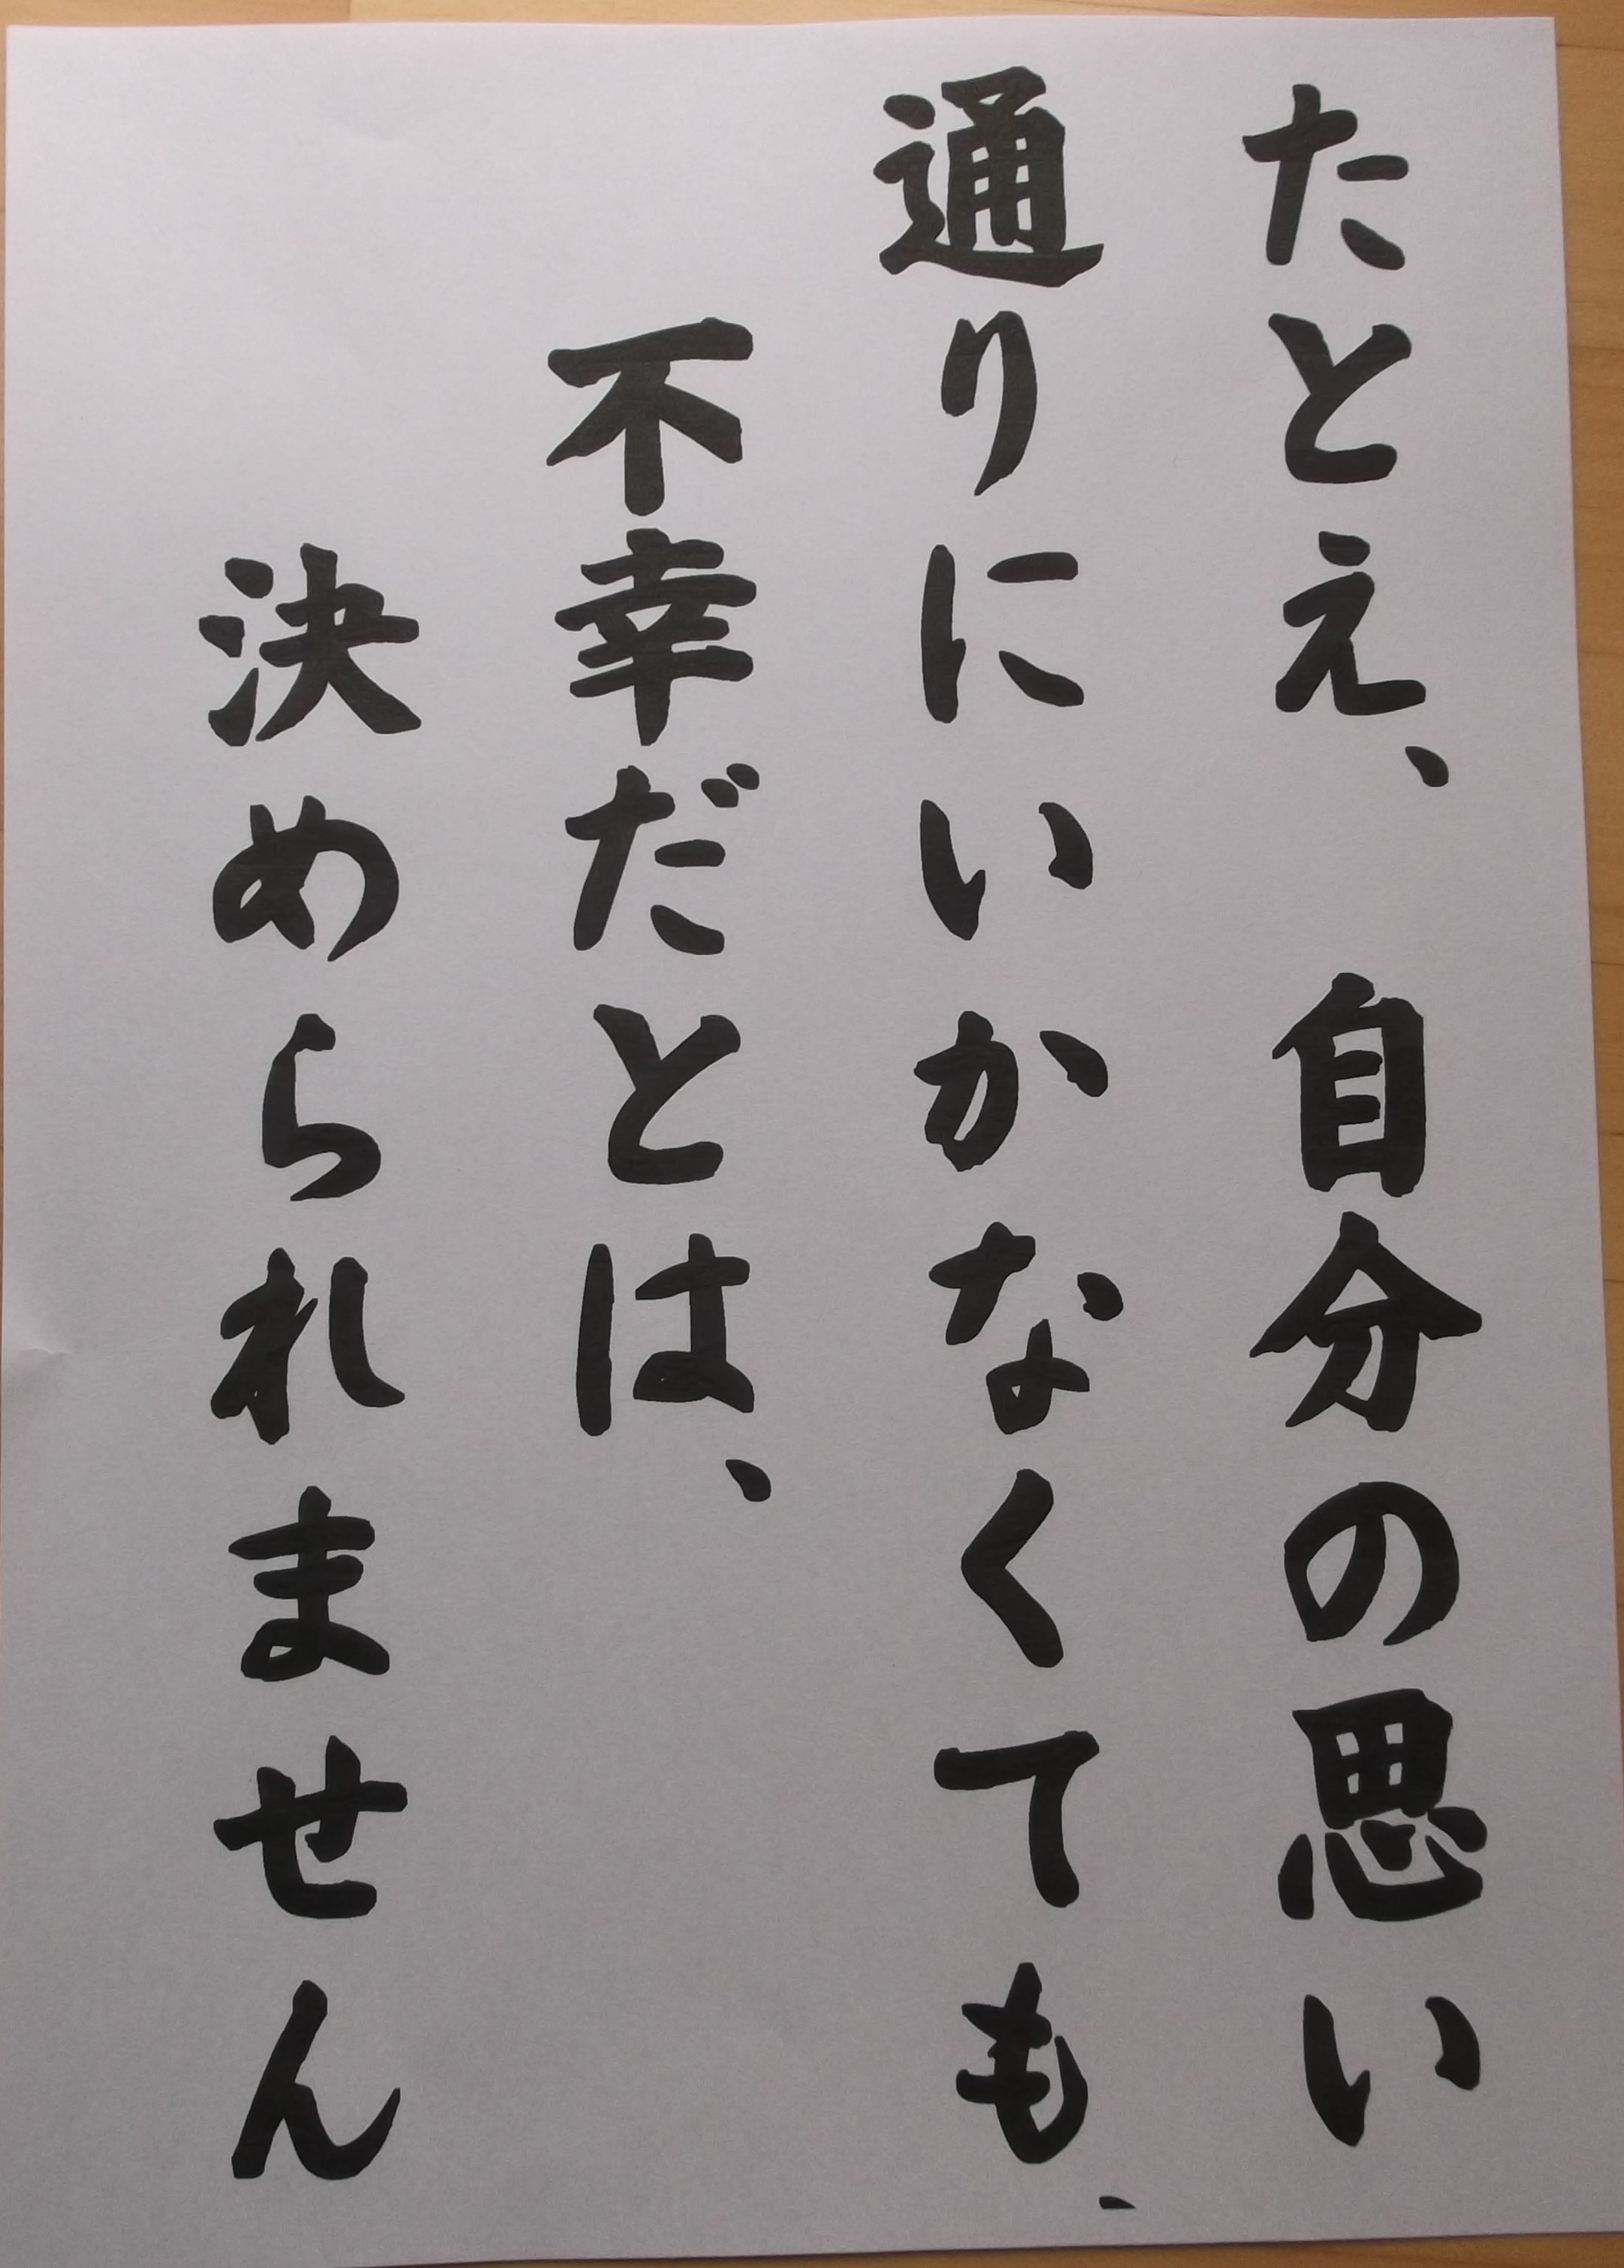 たとえ、自分の思い
通りにいかなくても、
不幸だとは、
決められません